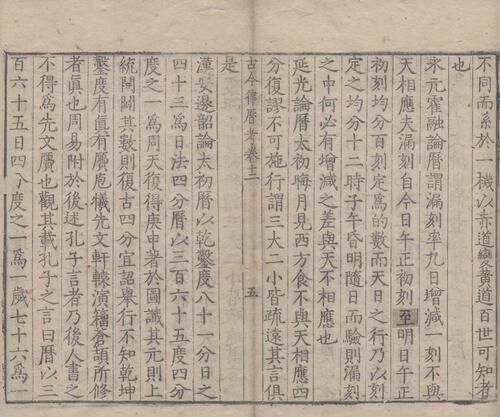 不同而系於一機以赤道變黃道百世可知者
也
永元霍融論曆謂漏刻率九日增減一刻不與
天相應夫漏刻自今日午正初刻至明日午正
初刻均分百刻定爲的數而天日之行乃以刻
定之均分十二時子午昏明隨日而驗則漏刻
之中何必有增減之差與天不相應也
延光論曆太初晦月見西方食不與天相應四
分復謬不可施行謂三大二小皆疏遠其言俱
是
古今律曆考卷十二
五
漢安邊韶論太初曆以乾鑿度八十一分日之
四十三爲日法四分曆以三百六十五度四分
度之一爲周天復得庚申著於圖讖其元則上
統開闢其數則復古四分宜詔舉行不知乾坤
鑿度有眞有贗庖犧先文軒轅演籀倉頡所修
者眞也周易附於後述孔子言者乃後人書之
不得爲先文贗也觀其載孔子之言曰曆以三
百六十五日四分度之一爲一歲七十六爲一